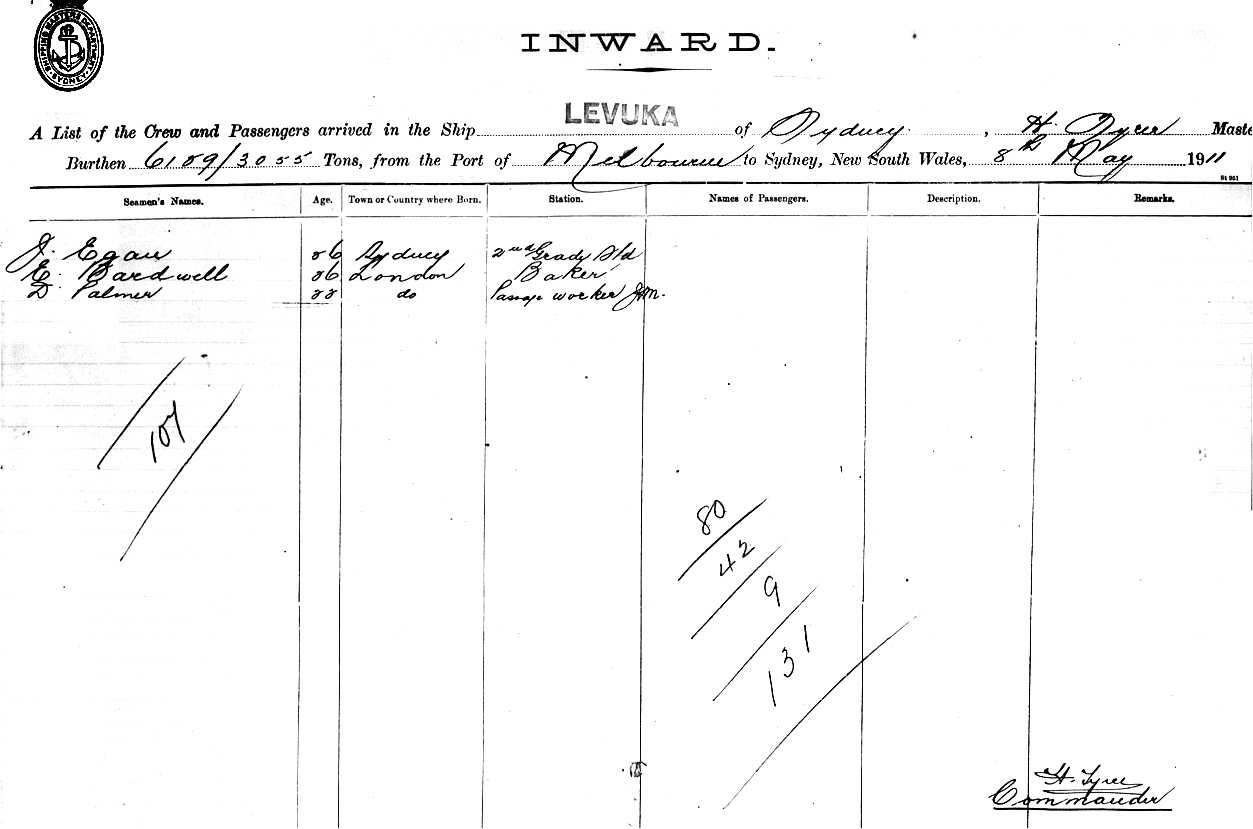 SHIPPING MASTERS DEPARTMENT
SYDNEY
INWARD.
A List of the Crew and Passengers arrived in the Ship LEVUKA of Sydney, H. Tyrer Maste
Burthen 6189/3055 Tons, from the Port of Melbourne to Sydney, New South Wales, 8th May 1911
St 961
Seamen's Names. Age. Town or Country where Born. Station. Names of Passengers. Description. Remarks.
J. Egan 36 Sydney 2nd Grady Std
E. Bardwell 36 London Baker
D. Palmer 33 do Passage worker
107
80
42
9
131
Commander